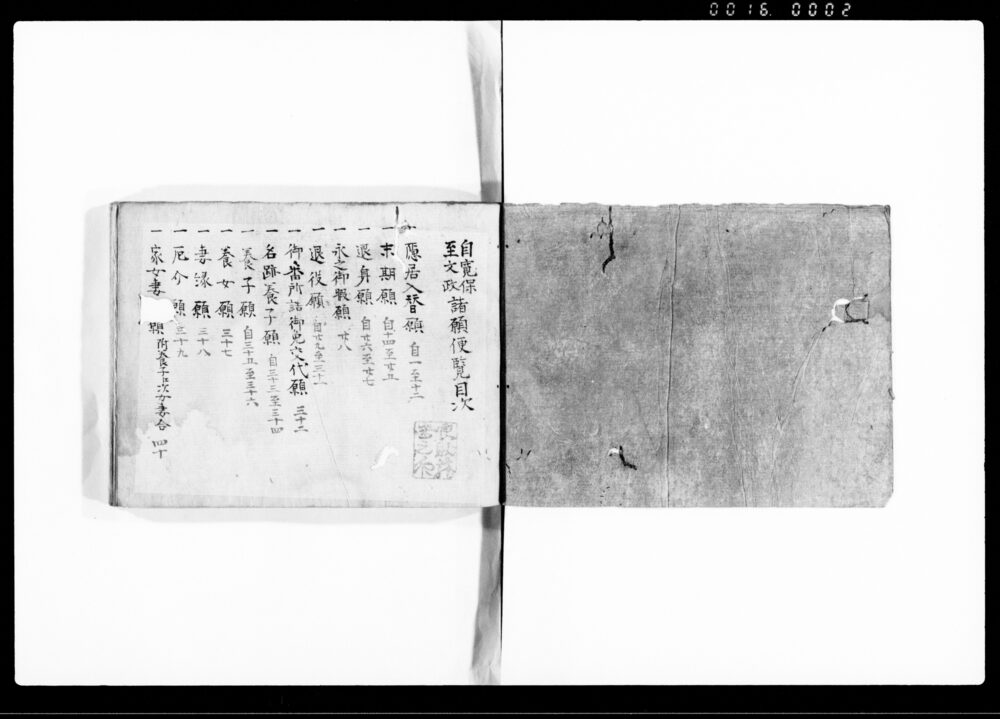 0016 0002
自寛保
至文政
諸願便覧目次
一隠居入替願 自一至十二
一末期願 自十四至廿五
一退身願 自廿六至廿七
一永之御暇願 廿八
一退役願 自廿九至三十一
一御番所詰御免交代願 三十二
一名跡養子願 自三十三至三十四
一養子願 自三十五至三十六
一養女願 三十七
一妻縁願 三十八
一厄介願 三十九
一家女妻 願附養子江次女妻合 四十